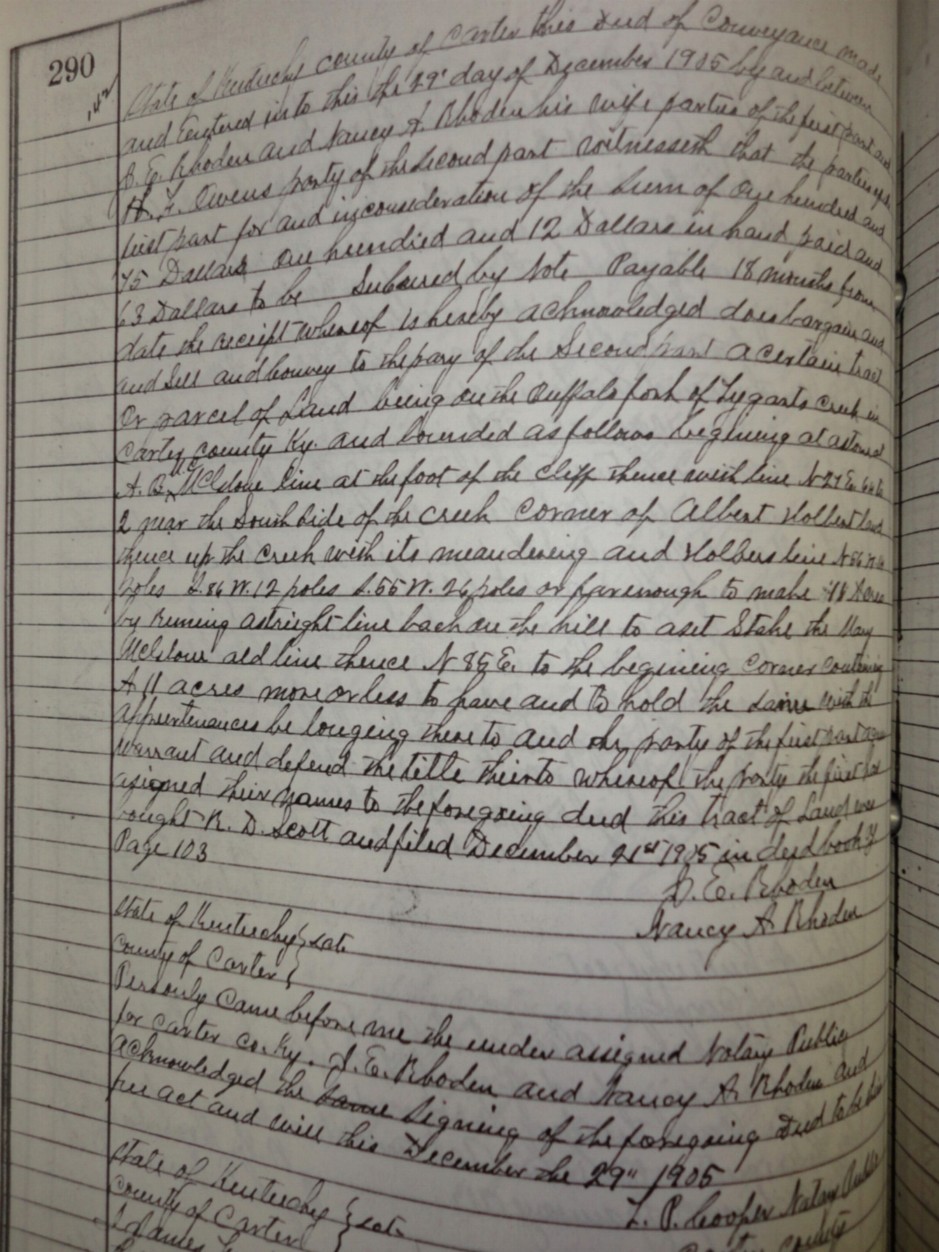 290
State of Kentucky county of Carter this Deed of Conveyance made
and Entered in to this the 29" day of December 1905 by and between
J. E. Rhoden and Nancy A. Rhoden his wife parties of the first part and
H. F. Owens party of the second part witnesseth that the parties of the
first part for and inconsideration of the Sum of One hundred and
75 Dollars One hundred and 12 Dollars in hand paid and
63 Dollars to be by Note Payable 18 months from
date the receipt whereof is hereby acknowledged does bargain and
and Sell and Convey to the pary of the Second part a certain tract
Or parcel of Land being on the Buffalo fork of Tygarts Creek in
Carter county Ky. and bounded as follows begining at a stone
A. B. McGlone line at the foot of the Cliff thence with line N 27 E
2 near the South Side of the creek Corner of Albert Holbert land
thence up the creek with its meandering and Holbers line N 56 W
poles S. 86 W. 12 poles S. 55 W. 26 poles or far enough to make Acres
by runing astright line back on the hill to aset Stake the
McGlone old line thence N 85 E. to the begining Corner Containing
acres more or less to have and to hold the same with the
appurtenances be longing there to and the party of the first part
warrant and defend the title theirto whereof the party the first has
asigned their names to the foregoing deed this tract of Land was
bought R. D. Scott and filed December 21st 1905 in deed book
Page 103
J. E. Rhoden
Nancy A Rhoden
State of Kentucky } Sct
County of Carter
Personly Came before me the under assigned Notary Public
for Carter Co. Ky. J. E. Rhoden and Nancy A. Rhoden and
acknowledged the same Signing of the foregoing Deed to be their
free act and will this December the 29" 1905
L. P. Cooper Notary Public
State of Kentucky } Sct
County of Carter
county